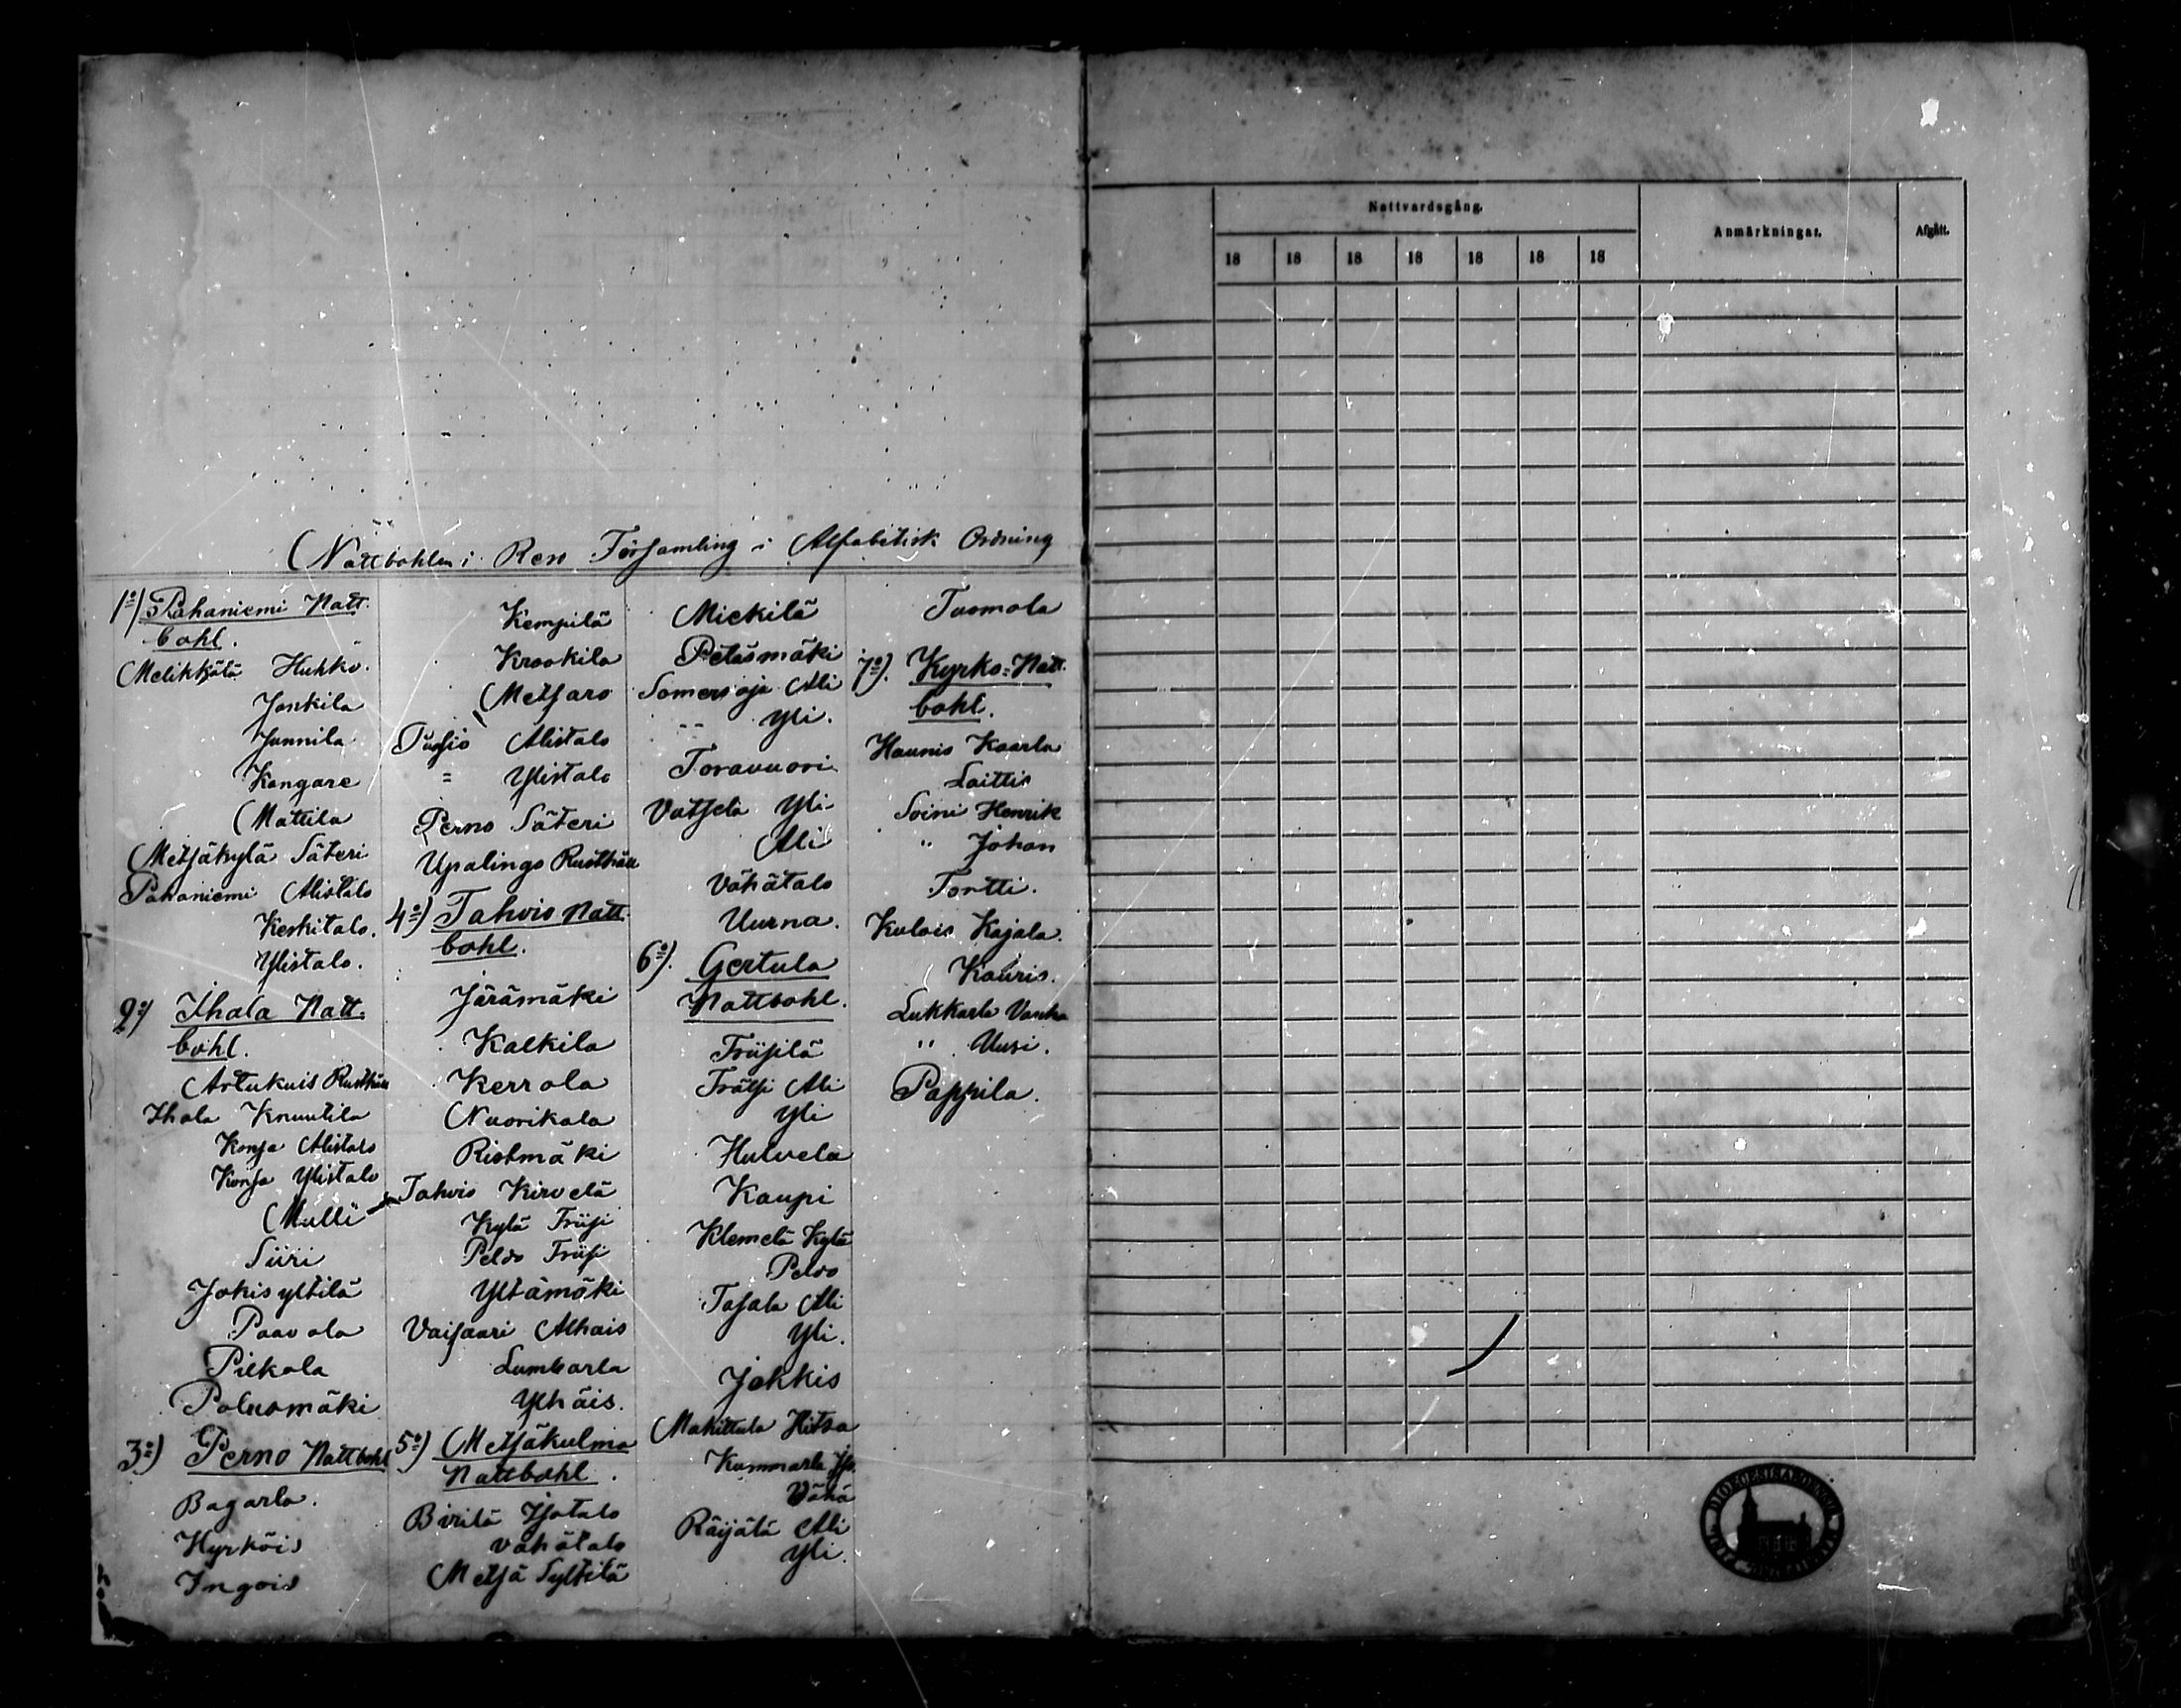 Nattbohlen i Reso Församling i Alfabetisk Ordning
1o) Pahaniemi Natt-
bohl.
Melikkälä Huhko.
Jankila
Junnila
Kangare
Mattila
Metsäkylä Säteri
Pahaniemi Alistalo
Keskitalo.
Ylistalo.
2o) Ihala Natt-
bohl.
Artukais Rusthåll
Ihala Knuutila
Konsa Alistalo
Konsa Ylistalo
Mulli
Siiri
Jokisyltilä
Paavola
Piekola
Polusmäki
3o) Perno Nattbohl
Bagarla.
Hyrköis
Ingois
Kempilä
Krookila
Metsaro
Pansio Alistalo
= Ylistalo
Perno Säteri
Upalingo Rusthåll
4o) Tahvio Natt-
bohl.
Järämäki
Kalkila
Kerrola
Nuorikala
Ristmäki
Tahvio Kirvelä
Kylä Friisi
Peldo Friisi
Yltämäki
Vaisaari Alhais
Lumbarla
Ylhäis.
5o) Metsäkulma
Nattbohl.
Birilä Isotalo
vähätalo
Metsä Syltilä
Mickilä
Petäsmäki
Somersoja Ali
" Yli.
Toravuori
Vatselä Yli
Ali
Vähätalo
Uurna.
6o). Gertula
Nattbohl.
Friisilä
Frätsi Ali
Yli
Hulvela
Kaupi
Klemelä Kylä
Peldo
Tasala Ali
Yli.
Jekkis
Makittula Hitsa
Kummarla Iso.
Vähä
Räijälä Ali
Yli.
Tuomola
7o). Kyrko-Natt-
bohl.
Haunis Kaarla
Laittis
Soini Henrik
" Johan
Tortti.
Kulois Kajala.
Kauris.
Lukkarla Vanha
" Uusi.
Pappila.
Nattvardsgång.
Anmärkningar.
Afgått.
18 18 18 18 18 18 18